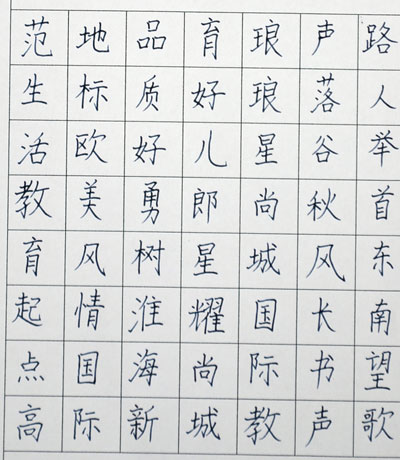 路人举首东南望歌
声落谷秋风长书声
琅琅星尚城国际教
育好儿郎星耀尚城
品质好勇树淮海新
地标欧美风情国际
范生活教育起点高